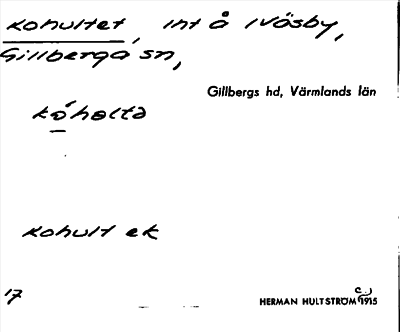 Kohultet, int å Ivåsby,
Gillberga sn,
Gillbergs hd, Värmlands län
kóholtə
Kohult ek
17
HERMAN HULTSTRÖM c.) 1915